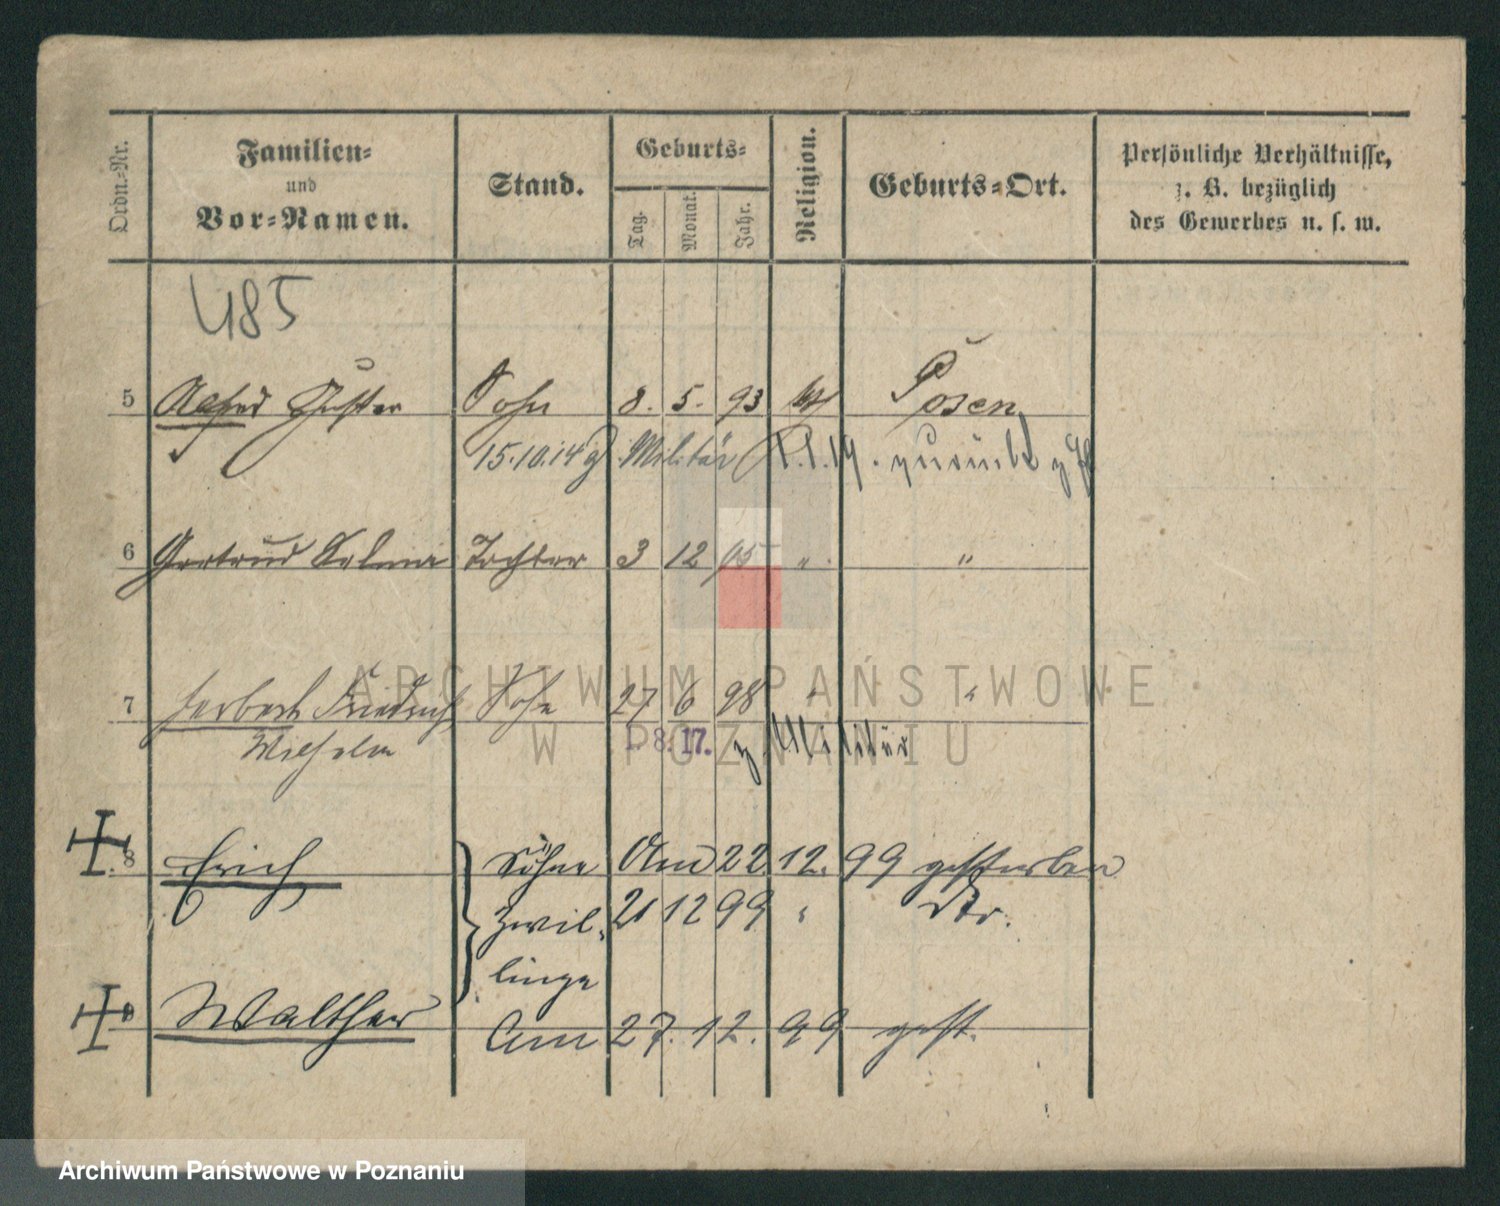 Ordn.-Nr.
Familien-
und
Vor-Namen.
Stand.
Geburts-
Tag.
Monat.
Jahr.
Religion.
Geburts-Ort.
Persönliche Verhältnisse,
z. B. bezüglich
des Gewerbes u. s. w.
485
5 Alfred Gustav Sohn 8. 5. 93 Posen
15.10.14 Militär 1.1.19. zurück
6 Gertrud Selma Tochter 3 12 95 " "
7 Herbert Friedrich Sohn 27 6 98 " "
Wilhelm 1. 8. 17. z. Militär
8 Erich Söhne Am 22 12. 99 gestorben
Zwil- 21 12 99 "
linge
9 Walther Am 27. 12. 99 gest.
ARCHIWUM PAŃSTWOWE
W POZNANIU
Archiwum Państwowe w Poznaniu